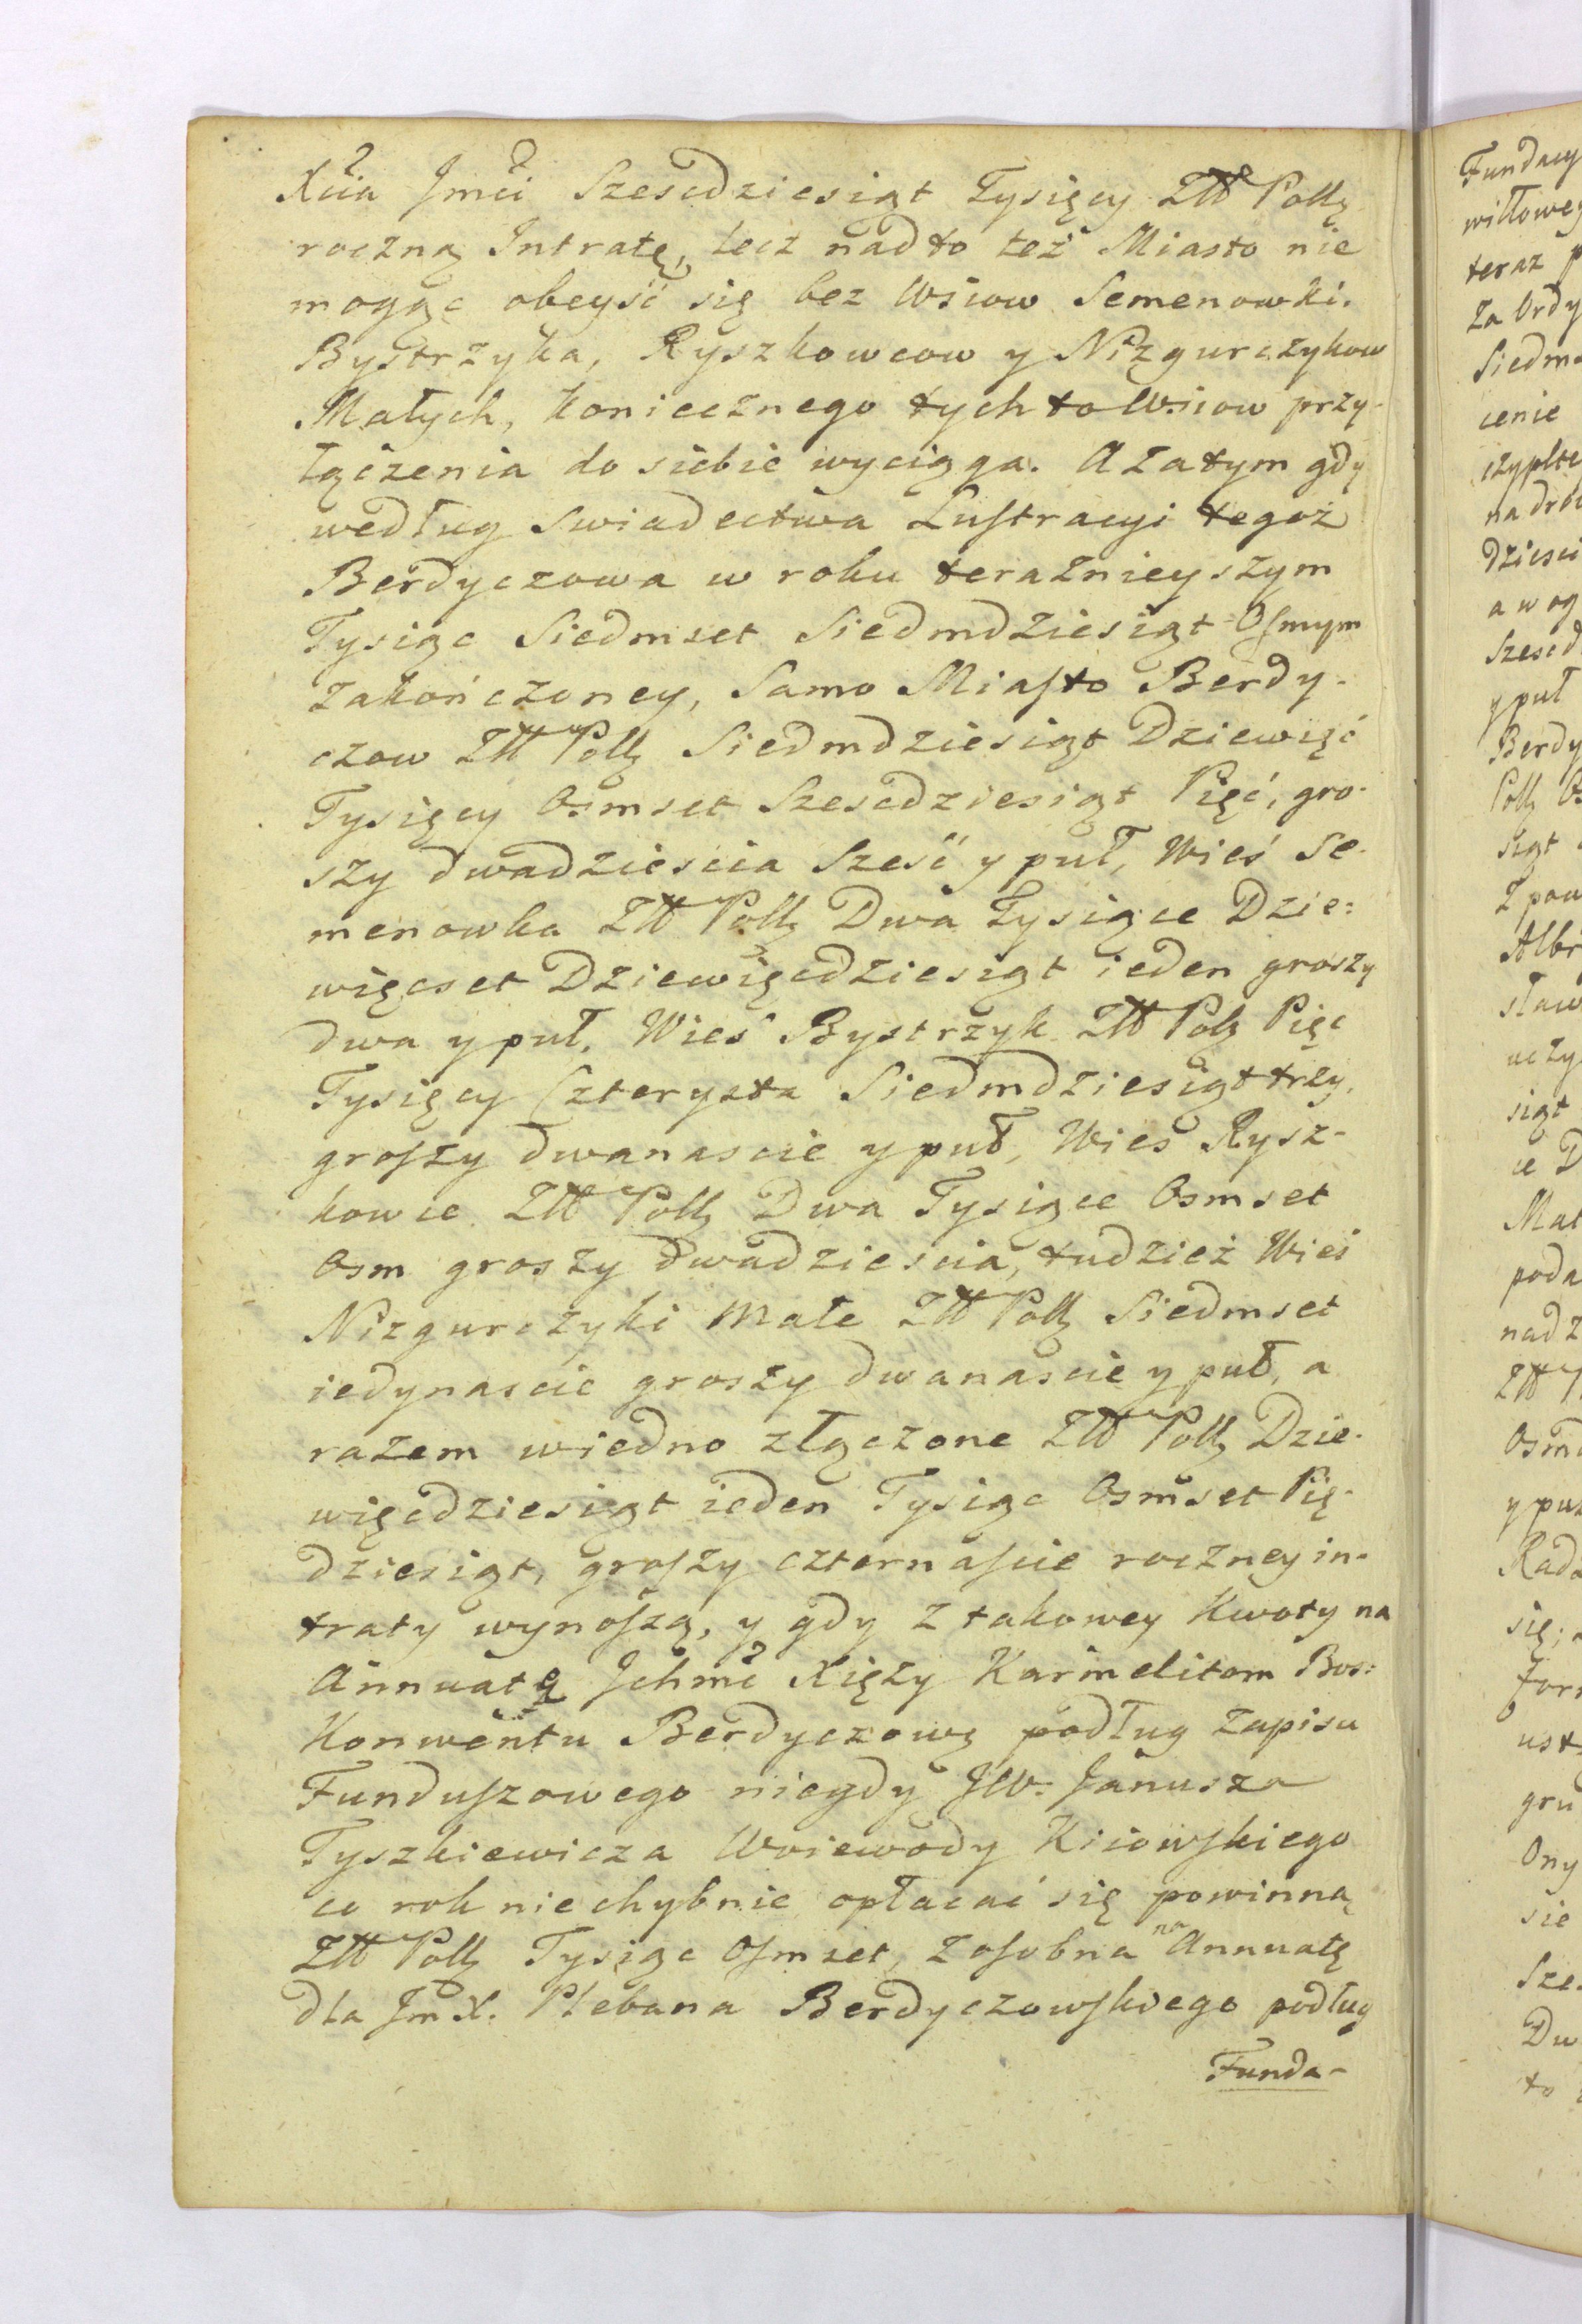 Xcia Jmci Szescdziesiąt Tysięcy Złł Pollę
roczną Intratę, lecz nadto też Miasto nie
mogąc obeyść się bez Wsiow Semenowki.
Bystrzyka, Ryszkowcow y Nizgurczykow
Małych, koniecznego tych to Wsiow przy-
łączenia do siebie wyciąga. A zatym gdy
według swiadectwa Lustracyi tegoż
Berdyczowa w roku teraznieyszym
Tysiąc Siedmset Siedmdziesiąt Osmym
zakończoney, Samo Miasto Berdy-
czow Złł Pollę Siedmdziesiąt Dziewięć
Tysięcy Osmset Szescdziesiąt Pięć, gro-
szy dwadziescia Sześć y puł, Wieś Se-
menowka Złł Pollę Dwa Tysiące Dzie:
więcset Dziewięcdziesiąt ieden groszy
dwa y puł. Wieś Bystrzyk Złł Polę Pięc
Tysięcy Czterysta Siedmdziesiąt trzy,
groszy dwanascie y puł, Wieś Rysz-
kowce Złł Pollę Dwa Tysiące Osmset
Osm groszy dwadziescia, tudzież Wieś
Nizgurczyki Małe Złł Pollę Siedmset
iedynascie groszy dwanascie y puł, a
razem wiedno złączone Złł Pollę Dzie-
więcdziesiąt ieden Tysiąc Osmset Pię-
dziesiąt, groszy czternascie roczney in-
traty wynoszą, y gdy z takowey Kwoty na
Annuatę Jchmć Xięży Karmelitom Bos:
Konwentu Berdyczowę podług Zapisu
Funduszowego niegdy JW. Janusza
Tyszkiewicza Woiewody Kiiowskiego
co rok niechybnie opłacać się powinną
Złł Pollę Tysiąc Osmset, Zosobna na Annuatę
dla Jm X. Plebana Berdyczowskiego podług
Funda-

Fundacy
teraz p
Za Ordy
Siedm-
cenie
dziesci
a w og
Szescd
y puł
Berdy
Pollę Os
siąt
Z pow
Albr
sław
uczy
siąt
ce D
Mał
poda
nadz
Złł P
Osmd
y puł
Rad
się,
ust
gru
Ony
sie
Sze
Dw
to